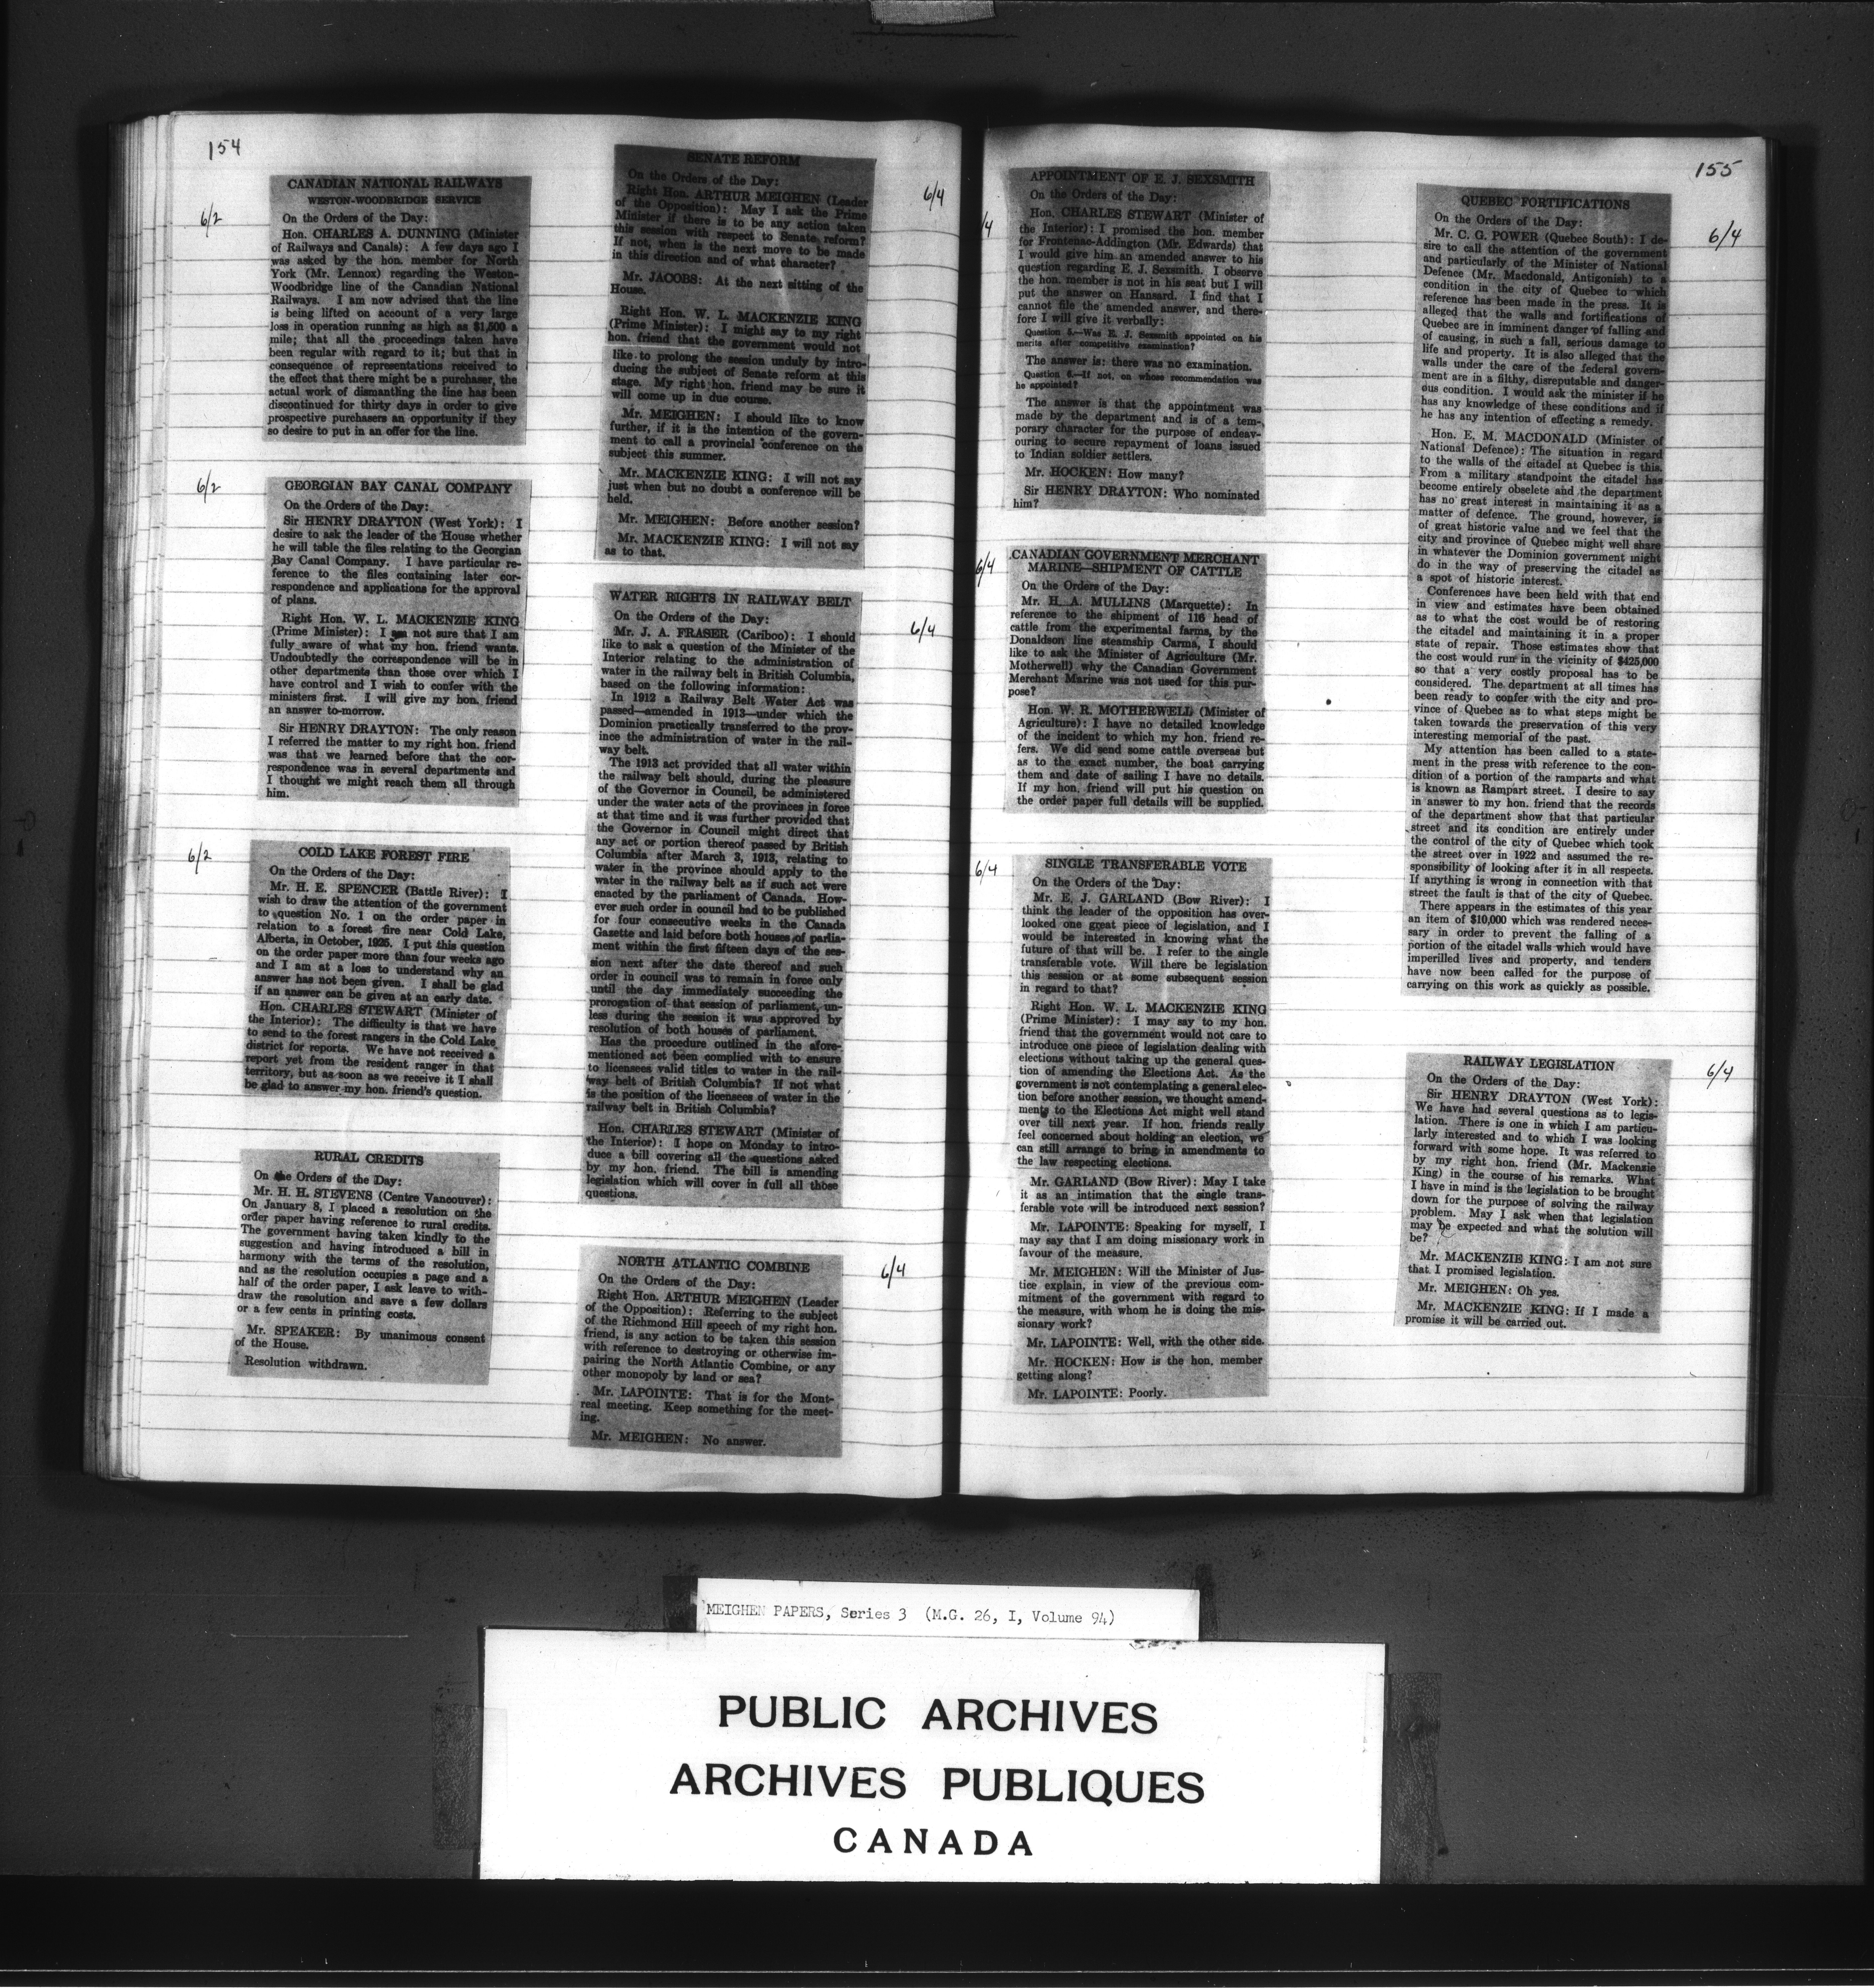 154
6/2
CANADIAN NATIONAL RAILWAYS
WESTON-WOODBRIDGE SERVICE
On the Orders of the Day:
Hon. CHARLES A. DUNNING (Minister
of Railways and Canals): A few days ago I
was asked by the hon. member for North
York (Mr. Lennox) regarding the Weston-
Woodbridge line of the Canadian National
Railways. I am now advised that the line
is being lifted on account of a very large
loss in operation running as high as $1,500 a
mile; that all the proceedings taken have
been regular with regard to it; but that in
consequence of representations received to
the effect that there might be a purchaser, the
actual work of dismantling the line has been
discontinued for thirty days in order to give
prospective purchasers an opportunity if they
so desire to put in an offer for the line.
6/2
GEORGIAN BAY CANAL COMPANY
On the Orders of the Day:
Sir HENRY DRAYTON (West York): I
desire to ask the leader of the House whether
he will table the files relating to the Georgian
Bay Canal Company. I have particular re-
ference to the files containing later cor-
respondence and applications for the approval
of plans.
Right Hon. W. L. MACKENZIE KING
(Prime Minister): I am not sure that I am
fully aware of what my hon. friend wants.
Undoubtedly the correspondence will be in
other departments than those over which I
have control and I wish to confer with the
ministers first. I will give my hon. friend
an answer to-morrow.
Sir HENRY DRAYTON: The only reason
I referred the matter to my right hon. friend
was that we learned before that the cor-
respondence was in several departments and
I thought we might reach them all through
him.
6/2
COLD LAKE FOREST FIRE
On the Orders of the Day:
Mr. H. E. SPENCER (Battle River): I
wish to draw the attention of the government
to question No. 1 on the order paper in
relation to a forest fire near Cold Lake,
Alberta, in October, 1925. I put this question
on the order paper more than four weeks ago
and I am at a loss to understand why an
answer has not been given. I shall be glad
if an answer can be given at an early date.
Hon. CHARLES STEWART (Minister of
the Interior): The difficulty is that we have
to send to the forest rangers in the Cold Lake
district for reports. We have not received a
report yet from the resident ranger in that
territory, but as soon as we receive it I shall
be glad to answer my hon. friend's question.
RURAL CREDITS
On the Orders of the Day:
Mr. H. H. STEVENS (Centre Vancouver):
On January 8, I placed a resolution on the
order paper having reference to rural credits.
The government having taken kindly to the
suggestion and having introduced a bill in
harmony with the terms of the resolution,
and as the resolution occupies a page and a
half of the order paper, I ask leave to with-
draw the resolution and save a few dollars
or a few cents in printing costs.
Mr. SPEAKER: By unanimous consent
of the House.
Resolution withdrawn.
6/4
SENATE REFORM
On the Orders of the Day:
Right Hon. ARTHUR MEIGHEN (Leader
of the Opposition): May I ask the Prime
Minister if there is to be any action taken
this session with respect to Senate reform?
If not, when is the next move to be made
in this direction and of what character?
Mr. JACOBS: At the next sitting of the
House.
Right Hon. W. L. MACKENZIE KING
(Prime Minister): I might say to my right
hon. friend that the government would not
like to prolong the session unduly by intro-
ducing the subject of Senate reform at this
stage. My right hon. friend may be sure it
will come up in due course.
Mr. MEIGHEN: I should like to know
further, if it is the intention of the govern-
ment to call a provincial conference on the
subject this summer.
Mr. MACKENZIE KING: I will not say
just when but no doubt a conference will be
held.
Mr. MEIGHEN: Before another session?
Mr. MACKENZIE KING: I will not say
as to that.
6/4
WATER RIGHTS IN RAILWAY BELT
On the Orders of the Day:
Mr. J. A. FRASER (Cariboo): I should
like to ask a question of the Minister of the
Interior relating to the administration of
water in the railway belt in British Columbia,
based on the following information:
In 1912 a Railway Belt Water Act was
passed—amended in 1913—under which the
Dominion practically transferred to the prov-
ince the administration of water in the rail-
way belt.
The 1913 act provided that all water within
the railway belt should, during the pleasure
of the Governor in Council, be administered
under the water acts of the provinces in force
at that time and it was further provided that
the Governor in Council might direct that
any act or portion thereof passed by British
Columbia after March 3, 1913, relating to
water in the province should apply to the
water in the railway belt as if such act were
enacted by the parliament of Canada. How-
ever such order in council had to be published
for four consecutive weeks in the Canada
Gazette and laid before both houses of parlia-
ment within the first fifteen days of the ses-
sion next after the date thereof and such
order in council was to remain in force only
until the day immediately succeeding the
prorogation of that session of parliament, un-
less during the session it was approved by
resolution of both houses of parliament.
Has the procedure outlined in the afore-
mentioned act been complied with to ensure
to licensees valid titles to water in the rail-
way belt of British Columbia? If not what
is the position of the licensees of water in the
railway belt in British Columbia?
Hon. CHARLES STEWART (Minister of
the Interior): I hope on Monday to intro-
duce a bill covering all the questions asked
by my hon. friend. The bill is amending
legislation which will cover in full all those
questions.
6/4
NORTH ATLANTIC COMBINE
On the Orders of the Day:
Right Hon. ARTHUR MEIGHEN (Leader
of the Opposition): Referring to the subject
of the Richmond Hill speech of my right hon.
friend, is any action to be taken this session
with reference to destroying or otherwise im-
pairing the North Atlantic Combine, or any
other monopoly by land or sea?
Mr. LAPOINTE: That is for the Mont-
real meeting. Keep something for the meet-
ing.
Mr. MEIGHEN: No answer.
155
/4
APPOINTMENT OF E. J. SEXSMITH
On the Orders of the Day:
Hon. CHARLES STEWART (Minister of
the Interior): I promised the hon. member
for Frontenac-Addington (Mr. Edwards) that
I would give him an amended answer to his
question regarding E. J. Sexsmith. I observe
the hon. member is not in his seat but I will
put the answer on Hansard. I find that I
cannot file the amended answer, and there-
fore I will give it verbally:
Question 5.—Was E. J. Sexsmith appointed on his
merits after competitive examination?
The answer is: there was no examination.
Question 6.—If not, on whose recommendation was
he appointed?
The answer is that the appointment was
made by the department and is of a tem-
porary character for the purpose of endeav-
ouring to secure repayment of loans issued
to Indian soldier settlers.
Mr. HOCKEN: How many?
Sir HENRY DRAYTON: Who nominated
him?
6/4
CANADIAN GOVERNMENT MERCHANT
MARINE—SHIPMENT OF CATTLE
On the Orders of the Day:
Mr. H. A. MULLINS (Marquette): In
reference to the shipment of 116 head of
cattle from the experimental farms, by the
Donaldson line steamship Carma, I should
like to ask the Minister of Agriculture (Mr.
Motherwell) why the Canadian Government
Merchant Marine was not used for this pur-
pose?
Hon. W. R. MOTHERWELL (Minister of
Agriculture): I have no detailed knowledge
of the incident to which my hon. friend re-
fers. We did send some cattle overseas but
as to the exact number, the boat carrying
them and date of sailing I have no details.
If my hon. friend will put his question on
the order paper full details will be supplied.
6/4
SINGLE TRANSFERABLE VOTE
On the Orders of the Day:
Mr. E. J. GARLAND (Bow River): I
think the leader of the opposition has over-
looked one great piece of legislation, and I
would be interested in knowing what the
future of that will be. I refer to the single
transferable vote. Will there be legislation
this session or at some subsequent session
in regard to that?
Right Hon. W. L. MACKENZIE KING
(Prime Minister): I may say to my hon.
friend that the government would not care to
introduce one piece of legislation dealing with
elections without taking up the general ques-
tion of amending the Elections Act. As the
government is not contemplating a general elec-
tion before another session, we thought amend-
ments to the Elections Act might well stand
over till next year. If hon. friends really
feel concerned about holding an election, we
can still arrange to bring in amendments to
the law respecting elections.
Mr. GARLAND (Bow River): May I take
it as an intimation that the single trans-
ferable vote will be introduced next session?
Mr. LAPOINTE: Speaking for myself, I
may say that I am doing missionary work in
favour of the measure.
Mr. MEIGHEN: Will the Minister of Jus-
tice explain, in view of the previous com-
mitment of the government with regard to
the measure, with whom he is doing the mis-
sionary work?
Mr. LAPOINTE: Well, with the other side.
Mr. HOCKEN: How is the hon. member
getting along?
Mr. LAPOINTE: Poorly.
6/4
QUEBEC FORTIFICATIONS
On the Orders of the Day:
Mr. C. G. POWER (Quebec South): I de-
sire to call the attention of the government
and particularly of the Minister of National
Defence (Mr. Macdonald, Antigonish) to a
condition in the city of Quebec to which
reference has been made in the press. It is
alleged that the walls and fortifications of
Quebec are in imminent danger of falling and
of causing, in such a fall, serious damage to
life and property. It is also alleged that the
walls under the care of the federal govern-
ment are in a filthy, disreputable and danger-
ous condition. I would ask the minister if he
has any knowledge of these conditions and if
he has any intention of effecting a remedy.
Hon. E. M. MACDONALD (Minister of
National Defence): The situation in regard
to the walls of the citadel at Quebec is this.
From a military standpoint the citadel has
become entirely obselete and the department
has no great interest in maintaining it as a
matter of defence. The ground, however, is
of great historic value and we feel that the
city and province of Quebec might well share
in whatever the Dominion government might
do in the way of preserving the citadel as
a spot of historic interest.
Conferences have been held with that end
in view and estimates have been obtained
as to what the cost would be of restoring
the citadel and maintaining it in a proper
state of repair. Those estimates show that
the cost would run in the vicinity of $425,000
so that a very costly proposal has to be
considered. The department at all times has
been ready to confer with the city and pro-
vince of Quebec as to what steps might be
taken towards the preservation of this very
interesting memorial of the past.
My attention has been called to a state-
ment in the press with reference to the con-
dition of a portion of the ramparts and what
is known as Rampart street. I desire to say
in answer to my hon. friend that the records
of the department show that that particular
street and its condition are entirely under
the control of the city of Quebec which took
the street over in 1922 and assumed the re-
sponsibility of looking after it in all respects.
If anything is wrong in connection with that
street the fault is that of the city of Quebec.
There appears in the estimates of this year
an item of $10,000 which was rendered neces-
sary in order to prevent the falling of a
portion of the citadel walls which would have
imperilled lives and property, and tenders
have now been called for the purpose of
carrying on this work as quickly as possible.
6/4
RAILWAY LEGISLATION
On the Orders of the Day:
Sir HENRY DRAYTON (West York):
We have had several questions as to legis-
lation. There is one in which I am particu-
larly interested and to which I was looking
forward with some hope. It was referred to
by my right hon. friend (Mr. Mackenzie
King) in the course of his remarks. What
I have in mind is the legislation to be brought
down for the purpose of solving the railway
problem. May I ask when that legislation
may be expected and what the solution will
be?
Mr. MACKENZIE KING: I am not sure
that I promised legislation.
Mr. MEIGHEN: Oh yes.
Mr. MACKENZIE KING: If I made a
promise it will be carried out.
MEIGHEN PAPERS, Series 3 (M.G. 26, I, Volume 94)
PUBLIC ARCHIVES
ARCHIVES PUBLIQUES
CANADA